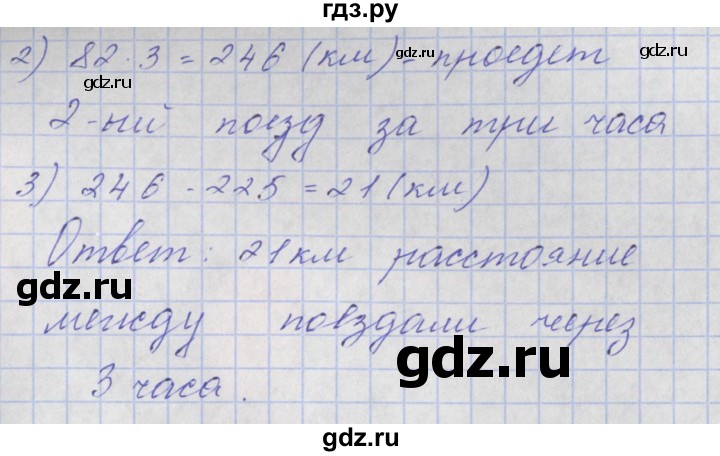 гдз.ру
2) 82·3 = 246 (км) - проедет
gdz.ru
gdz.ru
2-ий поезд за три часа
3) 246 - 225 = 21 (км)
Ответ: 21 км расстояние
gdz.ru
между поездами через
gdz.ru
3 часа.
gdz.ru